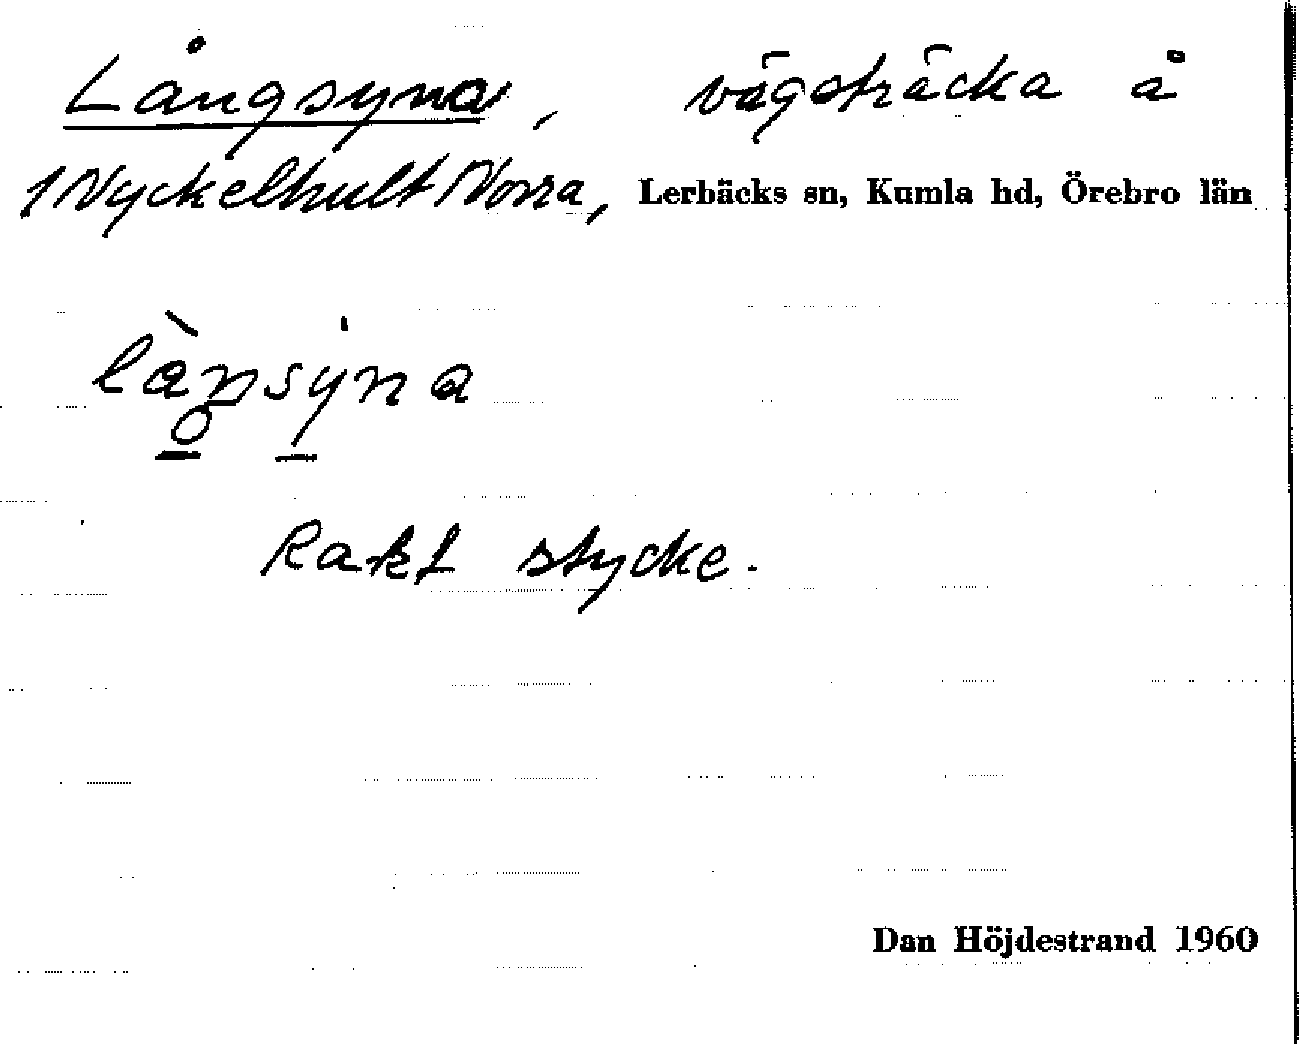 Långsyna, vägsträcka å
1 Nyckelhult Norra, Lerbäcks sn, Kumla hd, Örebro län
Rakt stycke.
Dan Höjdestrand 1960